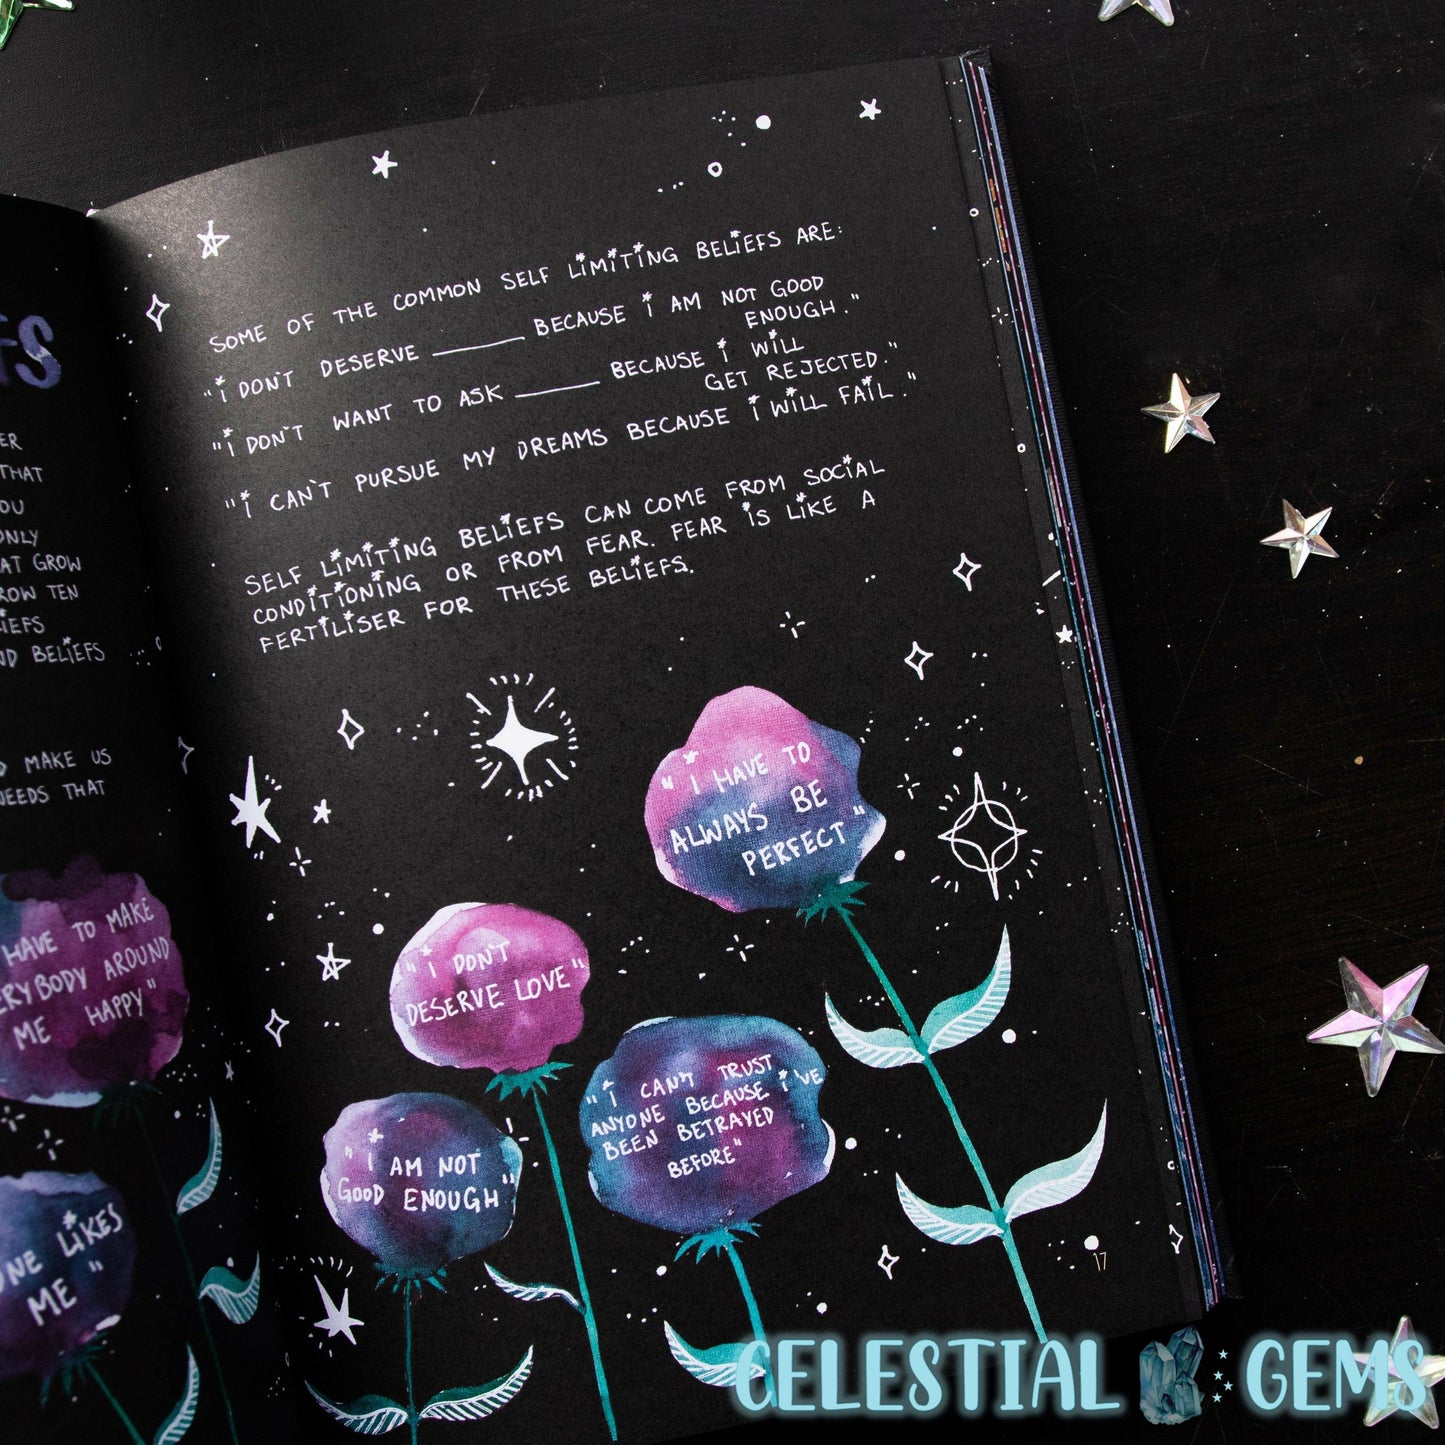 FS
ER
THAT
OU
ONLY
AT GROW
ROW TEN
IEFS
ND BELIEFS
D MAKE US
NEEDS THAT
HAVE TO MAKE
ERYBODY AROUND
ME HAPPY"
ONE LIKES
ME"
SOME OF THE COMMON SELF LIMITING BELIEFS ARE:
"I DON'T DESERVE ______ BECAUSE I AM NOT GOOD
ENOUGH."
"I DON'T WANT TO ASK ______ BECAUSE I WILL
GET REJECTED."
"I CAN'T PURSUE MY DREAMS BECAUSE I WILL FAIL."
SELF LIMITING BELIEFS CAN COME FROM SOCIAL
CONDITIONING OR FROM FEAR. FEAR IS LIKE A
FERTILISER FOR THESE BELIEFS.
"I HAVE TO
ALWAYS BE
PERFECT"
"I DON'T
DESERVE LOVE"
"I CAN'T TRUST
ANYONE BECAUSE I'VE
BEEN BETRAYED
BEFORE"
"I AM NOT
GOOD ENOUGH"
17
CELESTIAL GEMS